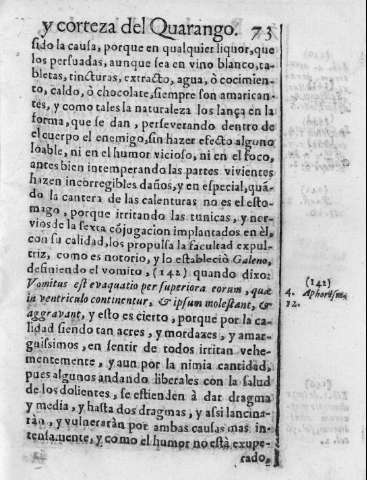 y corteza del Quarango. 73
sido la causa, porque en qualquier liquor, que
los persuadas, aunque sea en vino blanco, ta-
bletas, tincturas, extracto, agua, ò cocimien-
to, caldo, ò chocolate, siempre son amarican-
tes, y como tales la naturaleza los lança en la
forma, que se dan, perseverando dentro de
el cuerpo el enemigo, sin hazer efecto alguno
loable, ni en el humor vicioso, ni en el foco,
antes bien intemperando las partes vivientes
hazen incorregibles daños, y en especial, quã-
do la cantera de las calenturas no es el esto-
mago, porque irritando las tunicas, y ner-
vios de la sexta cójugacion implantados en èl,
con su calidad, los propulsa la facultad expul-
triz, como es notorio, y lo estableciò Galeno,
definiendo el vomito, (142) quando dixo:
Vomitus est evaquatio per superiora eorum, quæ
in ventriculo continentur, & ipsum molestant, &
aggravant, y esto es cierto, porque por la ca-
lidad siendo tan acres, y mordazes, y amar-
guissimos, en sentir de todos irritan vehe-
mentemente, y aun por la nimia cantidad,
pues algunos andando liberales con la salud
de los dolientes, se estienden à dar dragma
y media, y hasta dos dragmas, y assi lancina-
ràn, y vulneraràn por ambas causas mas in-
tensamente, y como el humor no està exupe-
rado,
(142)
4. Aphorism.
12.